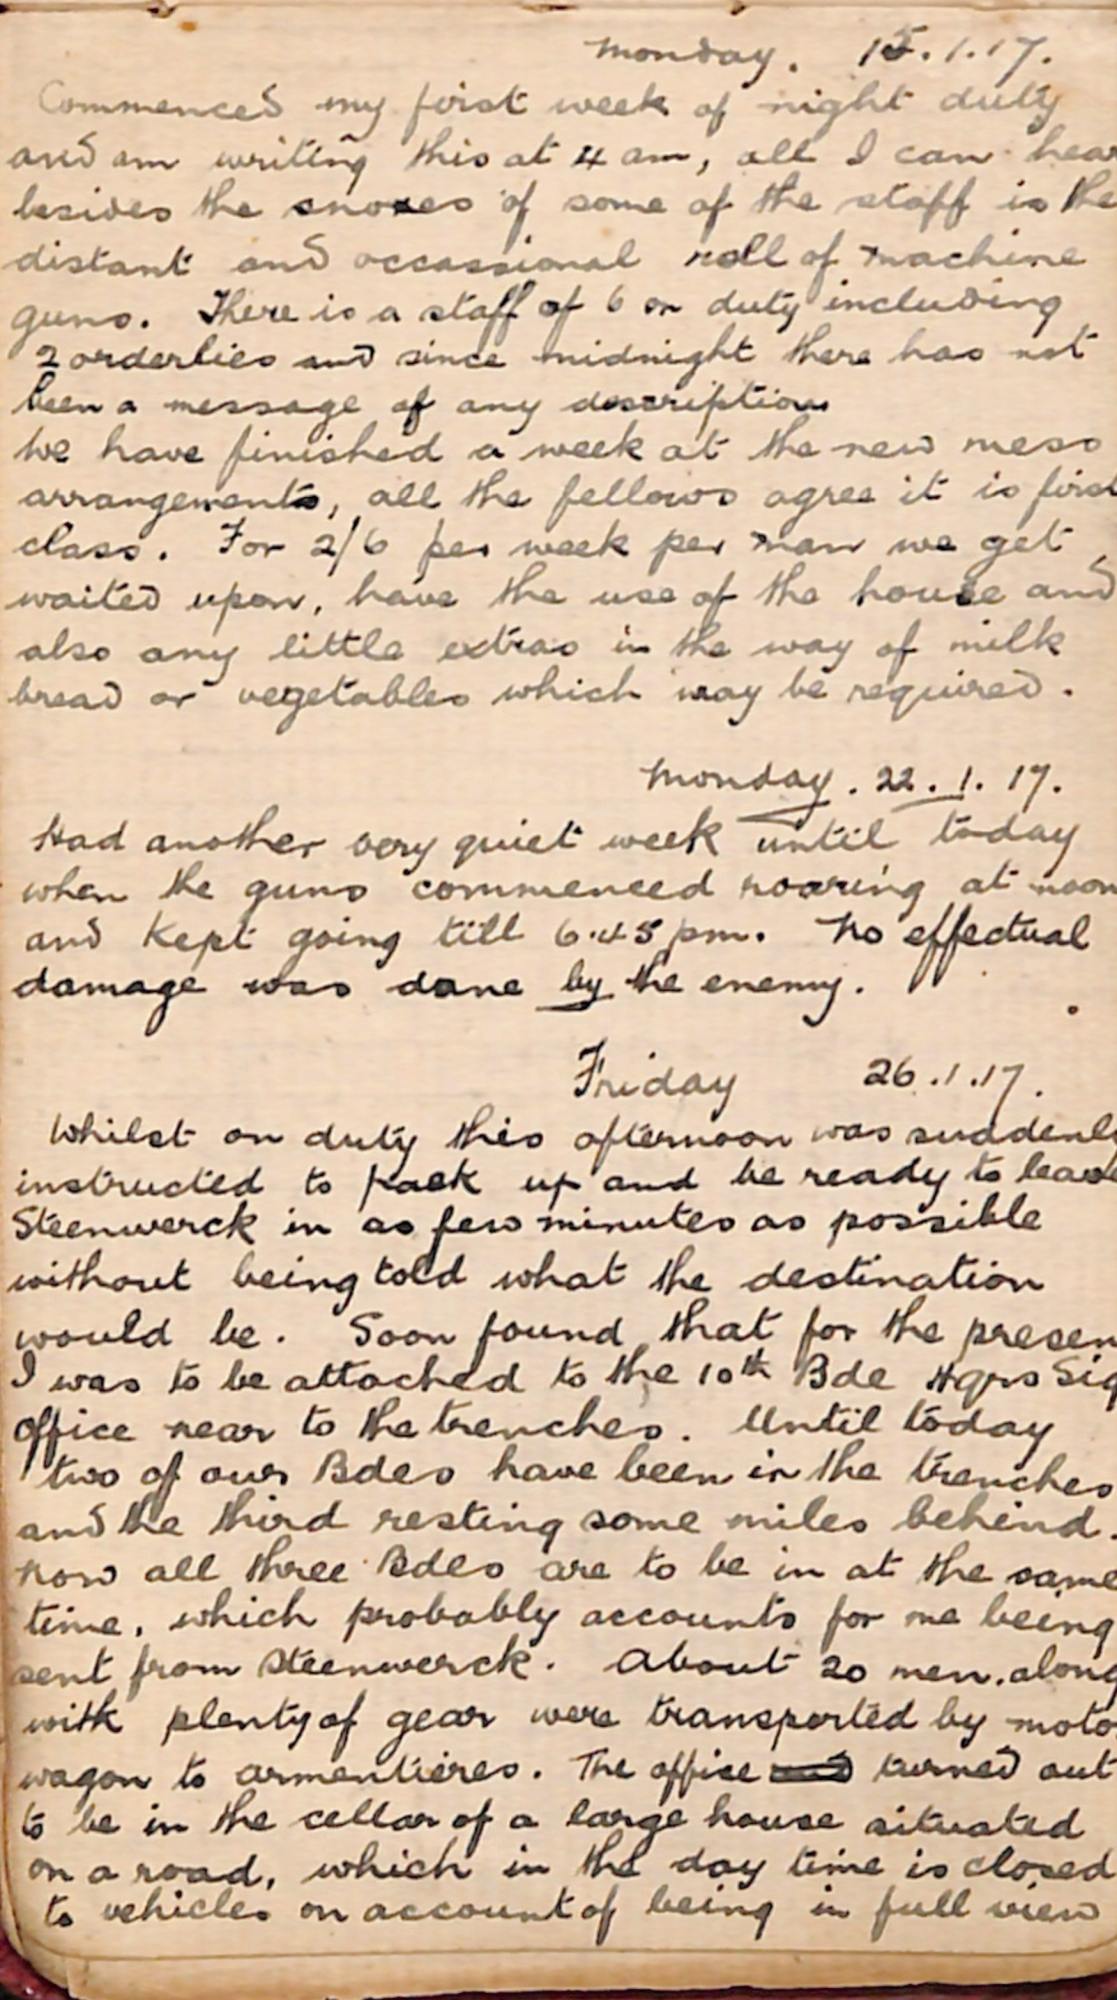 Monday. 15.1.17.
Commenced my first week of night duty
and am writing this at 4 am, all I can hear
besides the snores of some of the staff is the
distant and occassional roll of machine
guns. There is a staff of 6 on duty including
2 orderlies and since midnight there has not
been a message of any description
We have finished a week at the new mess
arrangements, all the fellows agree it is first
class. For 2/6 per week per man we get
waited upon, have the use of the house and
also any little extras in the way of milk
bread or vegetables which may be required.
Monday. 22.1.17.
Had another very quiet week until today
when the guns commenced roaring at noon
and kept going till 6.45 pm. No effectual
damage was done by the enemy.
Friday 26.1.17.
Whilst on duty this afternoon was suddenly
instructed to pack up and be ready to leave
Steenwerck in as few minutes as possible
without being told what the destination
would be. Soon found that for the presen
I was to be attached to the 10th Bde Hqrs Sig
office near to the trenches. Until today
two of our Bdes have been in the trenches
and the third resting some miles behind.
Now all three Bdes are to be in at the same
time, which probably accounts for me being
sent from Steenwerck. About 20 men, along
with plenty of gear were transported by moto
wagon to Armentieres. The office turned out
to be in the cellar of a large house situated
on a road, which in the day time is closed
to vehicles on account of being in full view